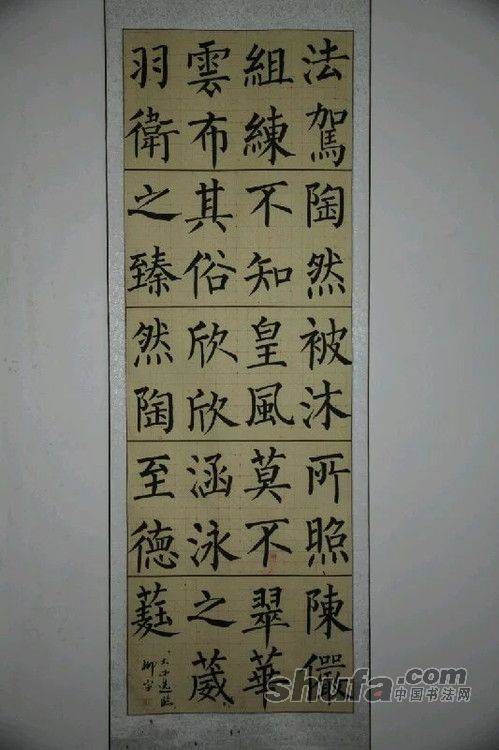 法駕陶然被沐所照陳儼
組練不知皇風莫不翠華
雲布其俗欣欣涵泳之葳
羽衛之臻然陶至德蕤
柳字
shufa.com
中国书法网